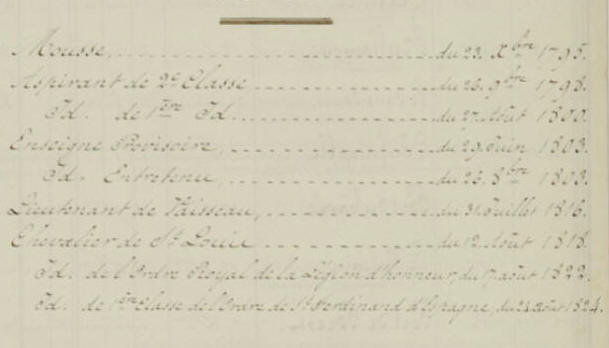 Mousse, du 23. Xbre 1795.
Aspirant de 2e Classe du 26. 9bre 1798.
Id. de 1ère Id. du 27. Août 1800.
Enseigne Provisoire, du 29. Juin 1803.
Id. Entretenu, du 26. 8bre 1803.
Lieutenant de Vaisseau, du 31. Juillet 1816.
Chevalier de St Louis du 12. Août 1818.
Id. de l'Ordre Royal de la Légion d'honneur, du 17. août 1822.
Id. de 1ère Classe de l'Ordre de St Ferdinand d'Espagne, du 24 août 1824.